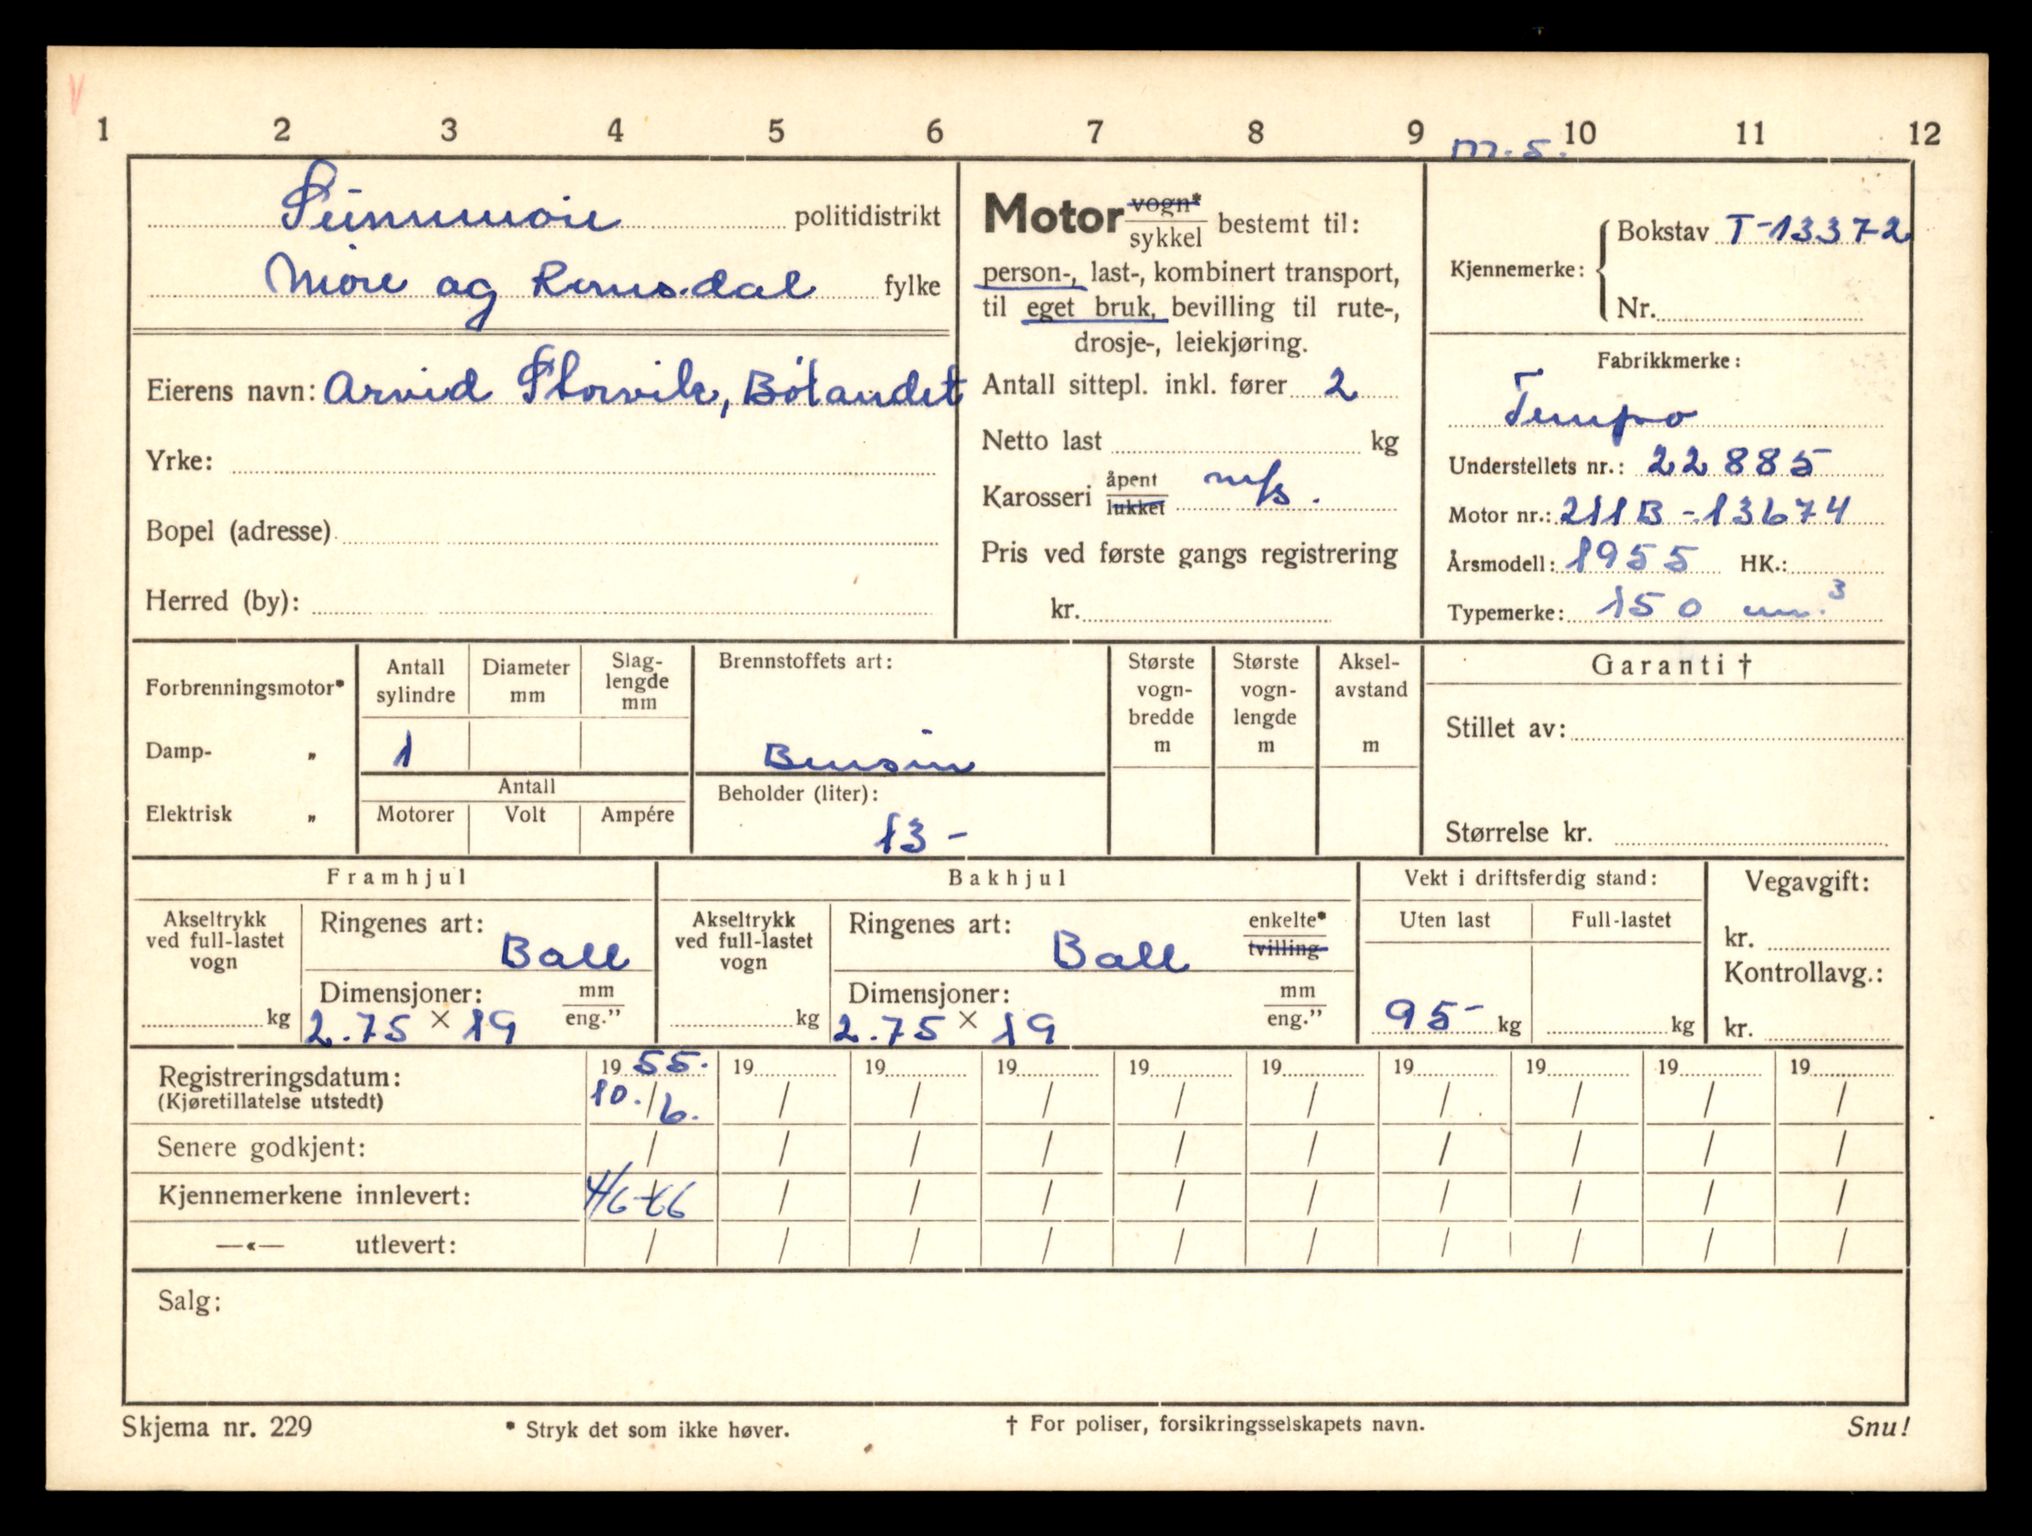 1 2 3 4 5 6 7 8 9 10 11 12
m.s.
Sunnmøre politidistrikt
Møre og Romsdal fylke
Eierens navn: Arvid Storvik, Bølandet
Yrke:
Bopel (adresse)
Herred (by):
Motor vogn* sykkel bestemt til:
person-, last-, kombinert transport,
til eget bruk, bevilling til rute-,
drosje-, leiekjøring.
Antall sittepl. inkl. fører 2
Netto last kg
Karosseri åpent lukket
Pris ved første gangs registrering
kr.
Kjennemerke: Bokstav T-13372
Nr.
Fabrikkmerke:
Tempo
Understellets nr.: 22885
Motor nr.: 211B-13674
Årsmodell: 1955 HK.:
Typemerke: 150 cm.³
Forbrenningsmotor*
Damp- „
Elektrisk „
Antall sylindre
1
Diameter mm
Slag-
lengde
mm
Antall
Motorer Volt Ampére
Brennstoffets art:
Bensin
Beholder (liter):
13 -
Største vogn-bredde m
Største vogn-lengde m
Aksel-avstand m
Garanti †
Stillet av:
Størrelse kr.
Framhjul
Akseltrykk
ved full-lastet
vogn
kg
Ringenes art:
Ball
Dimensjoner: mm eng."
2.75 × 19
Bakhjul
Akseltrykk
ved full-lastet
vogn
kg
Ringenes art: enkelte* tvilling
Ball
Dimensjoner: mm eng."
2.75 × 19
Vekt i driftsferdig stand:
Uten last Full-lastet
95- kg kg
Vegavgift:
kr.
Kontrollavg.:
kr.
Registreringsdatum: 19 55. 19 19 19 19 19 19 19 19 19
(Kjøretillatelse utstedt) 10./6. / / / / / / / / /
Senere godkjent: / / / / / / / / / /
Kjennemerkene innlevert: 4/6-66 / / / / / / / / /
—«— utlevert: / / / / / / / / / /
Salg:
Skjema nr. 229 * Stryk det som ikke høver. † For poliser, forsikringsselskapets navn. Snu!